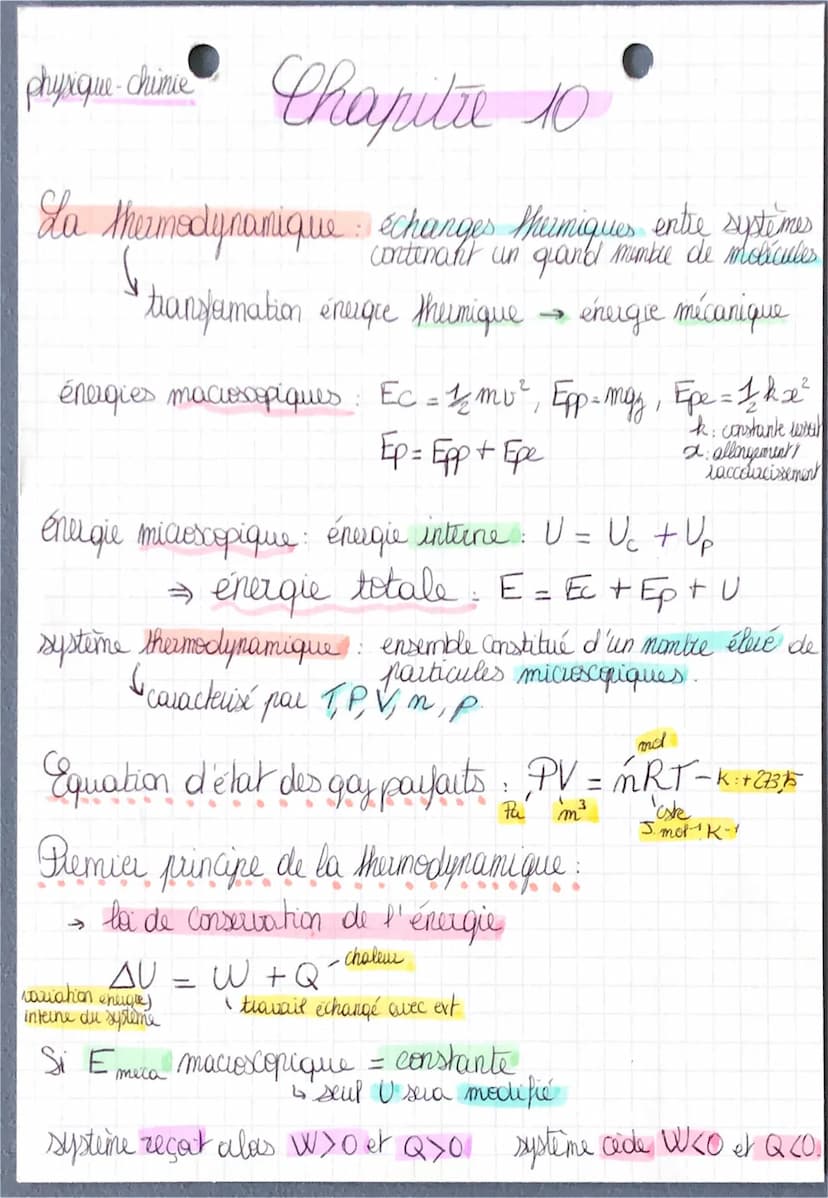 physique-chimie
Chapitre 10
La thermodynamique : échanges thermiques entre systèmes
contenant un grand nombre de molécules
↳ transformation énergie thermique → énergie mécanique
énergies macroscopiques : Ec = 1/2 mv², Epp = mgz, Epe = 1/2 k x²
k : constante
x : allongement/
raccourcissement
Ep = Epp + Epe
énergie microscopique : énergie interne : U = Uc + Up
⇒ énergie totale : E = Ec + Ep + U
système thermodynamique : ensemble constitué d'un nombre élevé de
particules microscopiques.
↳ caractérisé par T, P, V, n, ρ.
mol
Equation d'état des gaz parfaits : PV = nRT – K : +273,15
Pa m³ cste
J.mol⁻¹.K⁻¹
Premier principe de la thermodynamique :
→ loi de conservation de l'énergie
ΔU = W + Q – chaleur
variation énergie
interne du système
travail échangé avec ext
Si E meca macroscopique = constante
↳ seul U sera modifié
système reçoit alors W>0 et Q>0 système cède W<0 et Q<0.